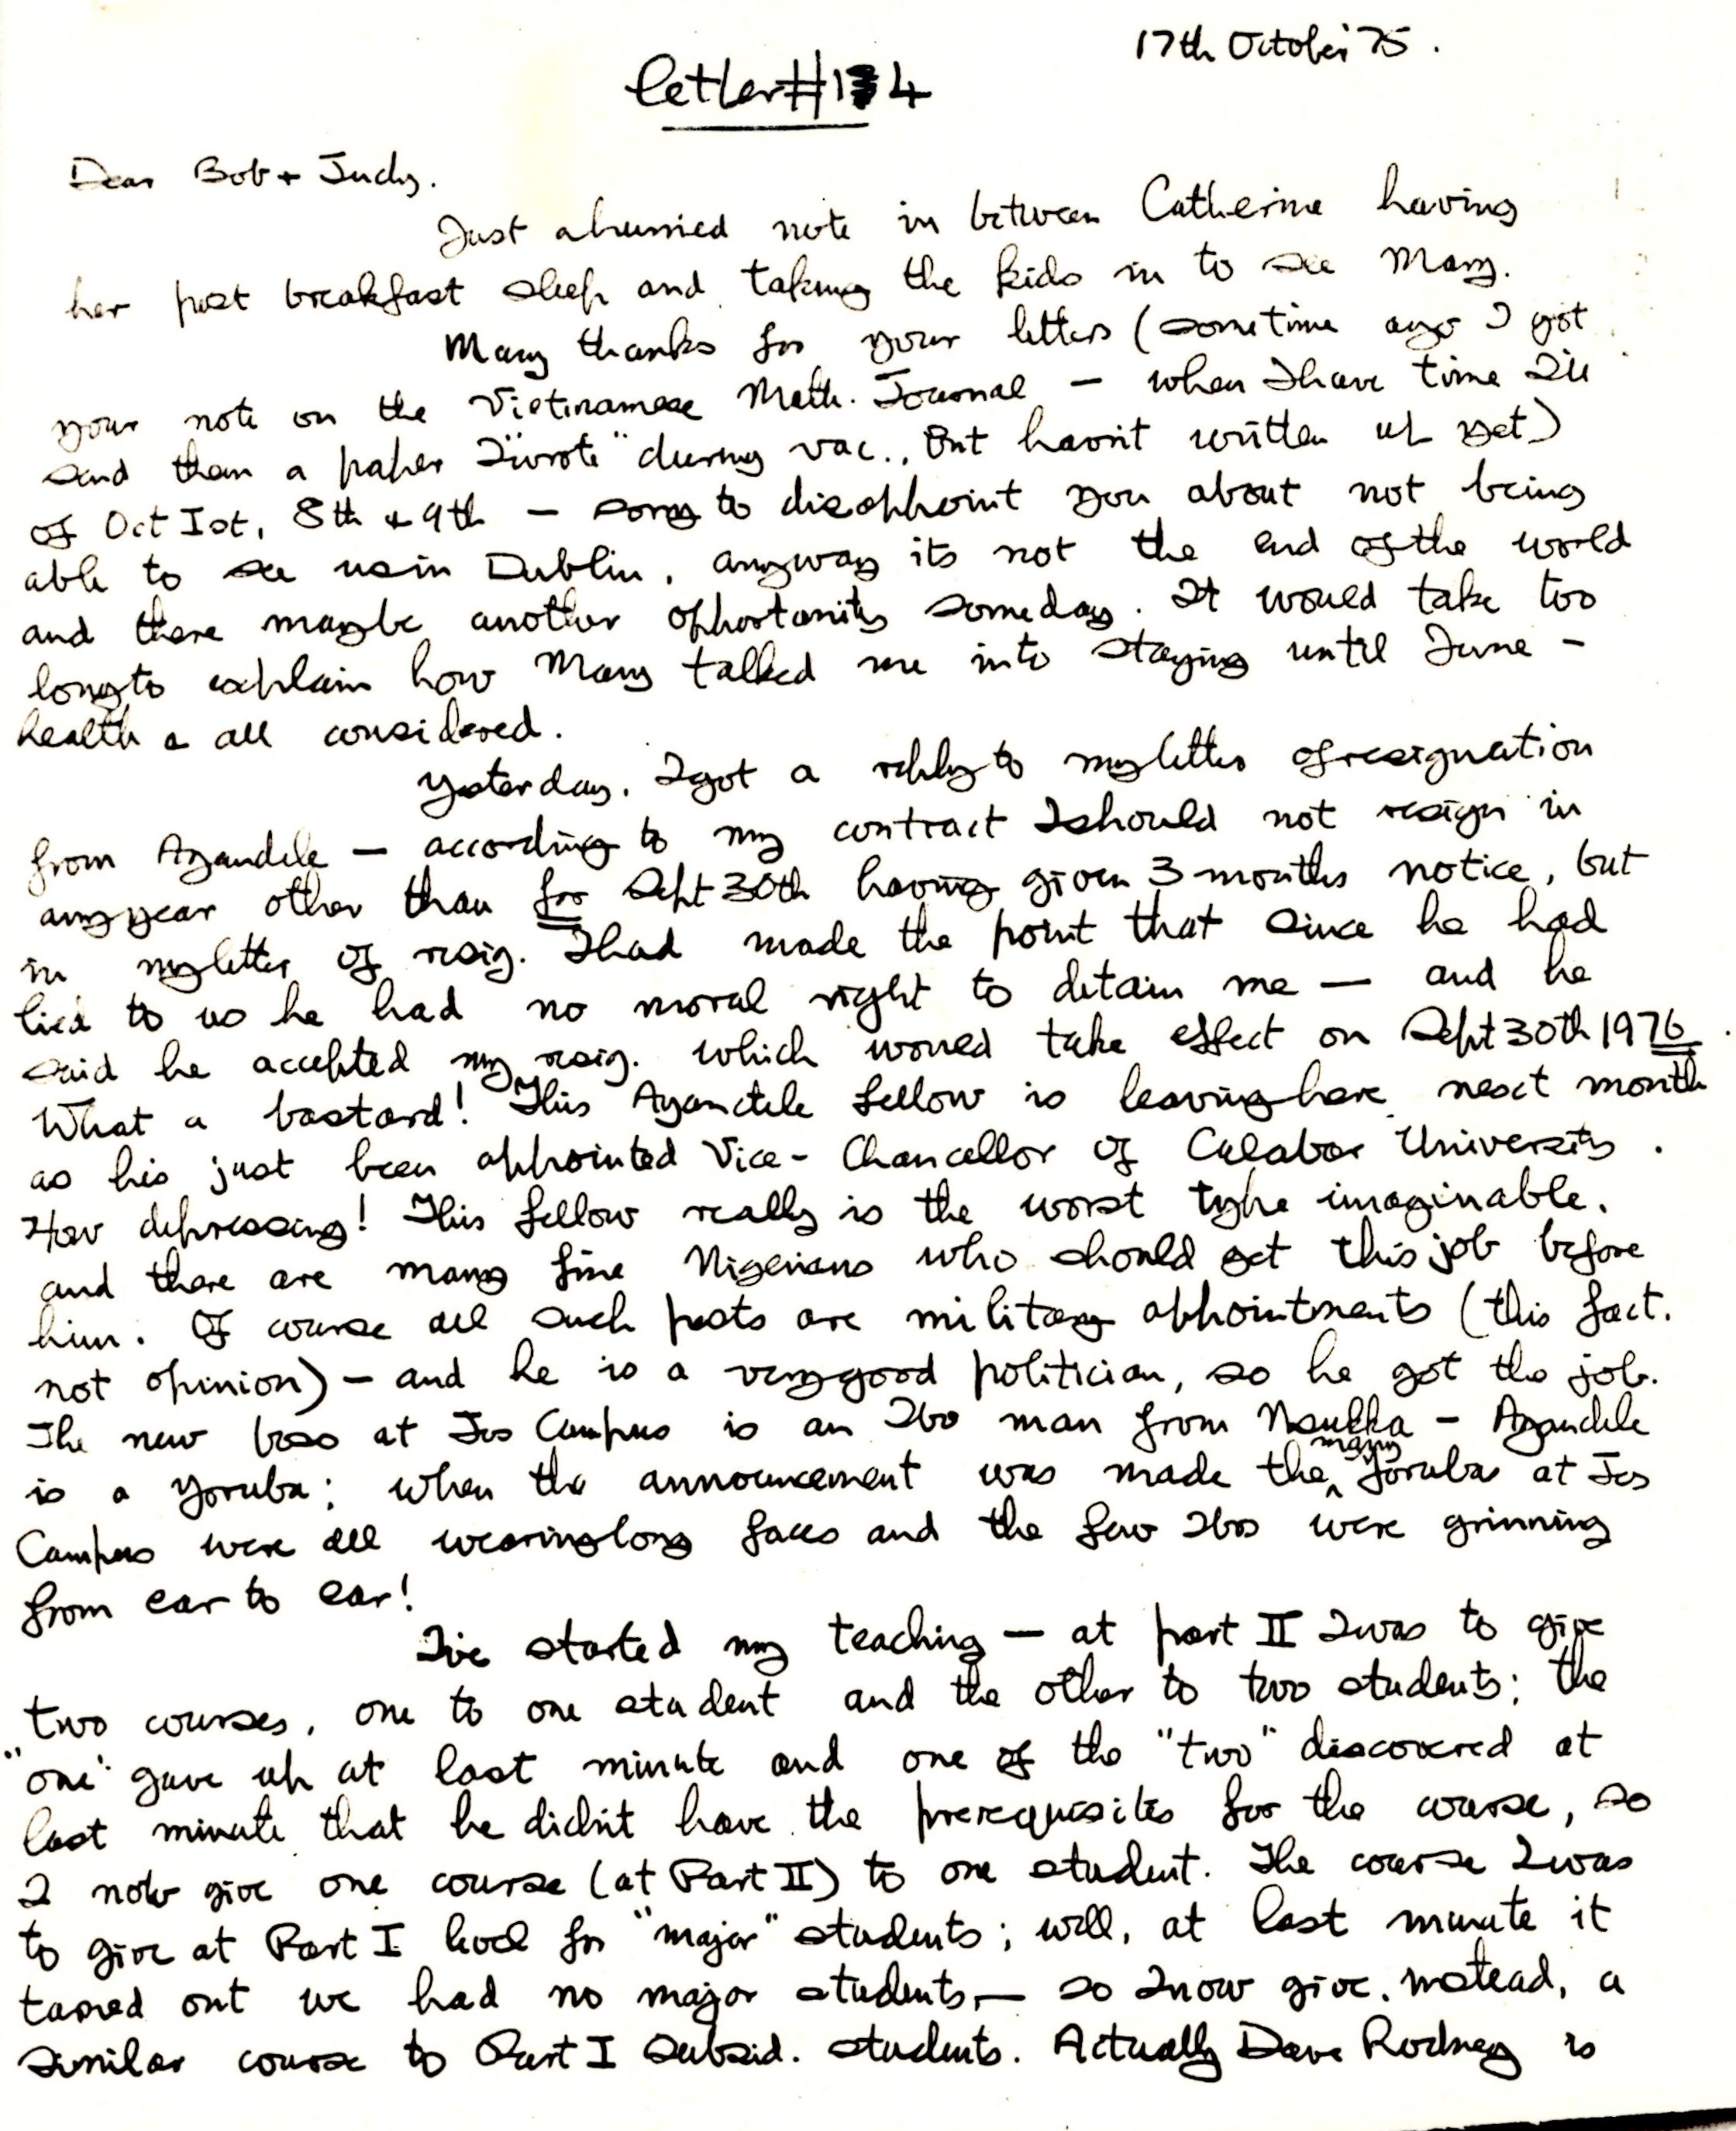 17th October 75.
Letter #14
Dear Bob + Judy.
Just a hurried note in between Catherine having
her post breakfast sleep and taking the kids in to see Mary.
Many thanks for your letters (sometime ago I got
your note on the Vietnamese Math. Journal — when I have time I'll
send them a paper I "wrote" during vac., but havn't written up yet)
of Oct 1st, 8th + 9th — sorry to disappoint you about not being
able to see us in Dublin, anyway its not the end of the world
and there maybe another opportunity someday. It would take too
long to explain how Mary talked me into staying until June —
health & all considered.
Yesterday, I got a reply to my letter of resignation
from Ayandele — according to my contract I should not resign in
any year other than for Sept 30th having given 3 months notice, but
in my letter of resig. I had made the point that since he had
lied to us he had no moral right to detain me — and he
said he accepted my resig. which would take effect on Sept 30th 1976.
What a bastard! This Ayandele fellow is leaving here next month
as his just been appointed Vice-Chancellor of Calabar University.
How depressing! This fellow really is the worst type imaginable,
and there are many fine Nigerians who should get this job before
him. Of course all such posts are military appointments (this fact,
not opinion) — and he is a very good politician, so he got the job.
The new boss at Jos Campus is an Ibo man from Nsukka — Ayandele
is a Yoruba; when the announcement was made the many Yorubas at Jos
Campus were all wearing long faces and the few Ibos were grinning
from ear to ear!
I've started my teaching — at part II I was to give
two courses, one to one student and the other to two students; the
"one" gave up at last minute and one of the "two" discovered at
last minute that he didn't have the prerequisites for the course, so
I now give one course (at Part II) to one student. The course I was
to give at Part I level for "major" students; well, at last minute it
turned out we had no major students — so I now give, instead, a
similar course to Part I subsid. students. Actually Dave Rodney is